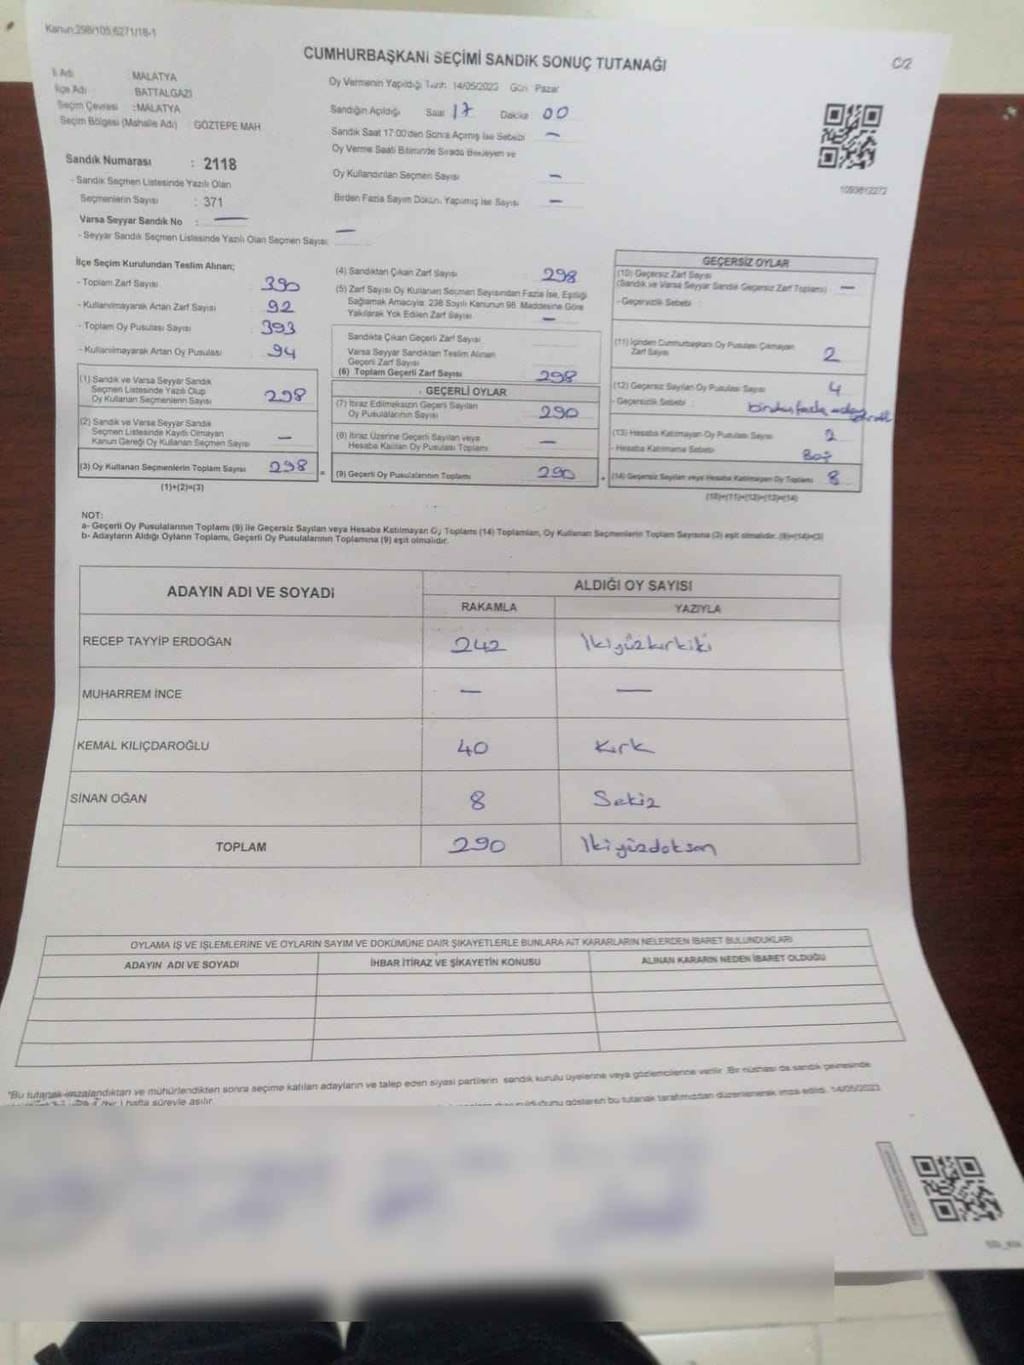 Kanun:298/105,6271/18-1
CUMHURBAŞKANI SEÇİMİ SANDIK SONUÇ TUTANAĞI
C/2
İl Adı : MALATYA
İlçe Adı : BATTALGAZİ
Seçim Çevresi : MALATYA
Seçim Bölgesi (Mahalle Adı) : GÖZTEPE MAH
Oy Vermenin Yapıldığı Tarih: 14/05/2023 Gün: Pazar
Sandığın Açıldığı Saat 17 Dakika 00
Sandık Saat 17:00'den Sonra Açılmış İse Sebebi —
Oy Verme Saati Bitiminde Sırada Bekleyen ve
Oy Kullandırılan Seçmen Sayısı —
Birden Fazla Sayım Döküm Yapılmış İse Sayısı —
Sandık Numarası : 2118
- Sandık Seçmen Listesinde Yazılı Olan
Seçmenlerin Sayısı : 371
Varsa Seyyar Sandık No : —
- Seyyar Sandık Seçmen Listesinde Yazılı Olan Seçmen Sayısı: —
İlçe Seçim Kurulundan Teslim Alınan;
- Toplam Zarf Sayısı 390
- Kullanılmayarak Artan Zarf Sayısı 92
- Toplam Oy Pusulası Sayısı 393
- Kullanılmayarak Artan Oy Pusulası 94
(1) Sandık ve Varsa Seyyar Sandık
Seçmen Listesinde Yazılı Olup
Oy Kullanan Seçmenlerin Sayısı 298
(2) Sandık ve Varsa Seyyar Sandık
Seçmen Listesinde Kayıtlı Olmayan
Kanun Gereği Oy Kullanan Seçmen Sayısı —
(3) Oy Kullanan Seçmenlerin Toplam Sayısı 298 =
(1)+(2)=(3)
(4) Sandıktan Çıkan Zarf Sayısı 298
(5) Zarf Sayısı Oy Kullanan Seçmen Sayısından Fazla İse, Eşitliği
Sağlamak Amacıyla 298 Sayılı Kanunun 98. Maddesine Göre
Yakılarak Yok Edilen Zarf Sayısı —
Sandıkta Çıkan Geçerli Zarf Sayısı
Varsa Seyyar Sandıktan Teslim Alınan
Geçerli Zarf Sayısı
(6) Toplam Geçerli Zarf Sayısı 298
GEÇERLİ OYLAR
(7) İtiraz Edilmeksizin Geçerli Sayılan
Oy Pusulalarının Sayısı 290
(8) İtiraz Üzerine Geçerli Sayılan veya
Hesaba Katılan Oy Pusulası Toplamı —
(9) Geçerli Oy Pusulalarının Toplamı 290 +
GEÇERSİZ OYLAR
(10) Geçersiz Zarf Sayısı
(Sandık ve Varsa Seyyar Sandık Geçersiz Zarf Toplamı) —
- Geçersizlik Sebebi :
(11) İçinden Cumhurbaşkanı Oy Pusulası Çıkmayan
Zarf Sayısı 2
(12) Geçersiz Sayılan Oy Pusulası Sayısı 4
- Geçersizlik Sebebi : birden fazla
(13) Hesaba Katılmayan Oy Pusulası Sayısı 2
- Hesaba Katılmama Sebebi Boş
(14) Geçersiz Sayılan veya Hesaba Katılmayan Oy Toplamı 8
(10)+(11)+(12)+(13)=(14)
NOT:
a- Geçerli Oy Pusulalarının Toplamı (9) ile Geçersiz Sayılan veya Hesaba Katılmayan Oy Toplamı (14) Toplamları, Oy Kullanan Seçmenlerin Toplam Sayısına (3) eşit olmalıdır. (9)+(14)=(3)
b- Adayların Aldığı Oyların Toplamı, Geçerli Oy Pusulalarının Toplamına (9) eşit olmalıdır.
ADAYIN ADI VE SOYADI
ALDIĞI OY SAYISI
RAKAMLA YAZIYLA
RECEP TAYYİP ERDOĞAN 242 İkiyüzkırkiki
MUHARREM İNCE — —
KEMAL KILIÇDAROĞLU 40 Kırk
SİNAN OĞAN 8 Sekiz
TOPLAM 290 İkiyüzdoksan
OYLAMA İŞ VE İŞLEMLERİNE VE OYLARIN SAYIM VE DÖKÜMÜNE DAİR ŞİKAYETLERLE BUNLARA AİT KARARLARIN NELERDEN İBARET BULUNDUKLARI
ADAYIN ADI VE SOYADI İHBAR İTİRAZ VE ŞİKAYETİN KONUSU ALINAN KARARIN NEDEN İBARET OLDUĞU
"Bu tutanak imzalandıktan ve mühürlendikten sonra seçime katılan adayların ve talep eden siyasi partilerin sandık kurulu üyelerine veya gözlemcilerine verilir. Bir nüshası da sandık çevresinde
1 hafta süreyle asılır.
gösteren bu tutanak tarafımızdan düzenlenerek imza edildi. 14/05/2023